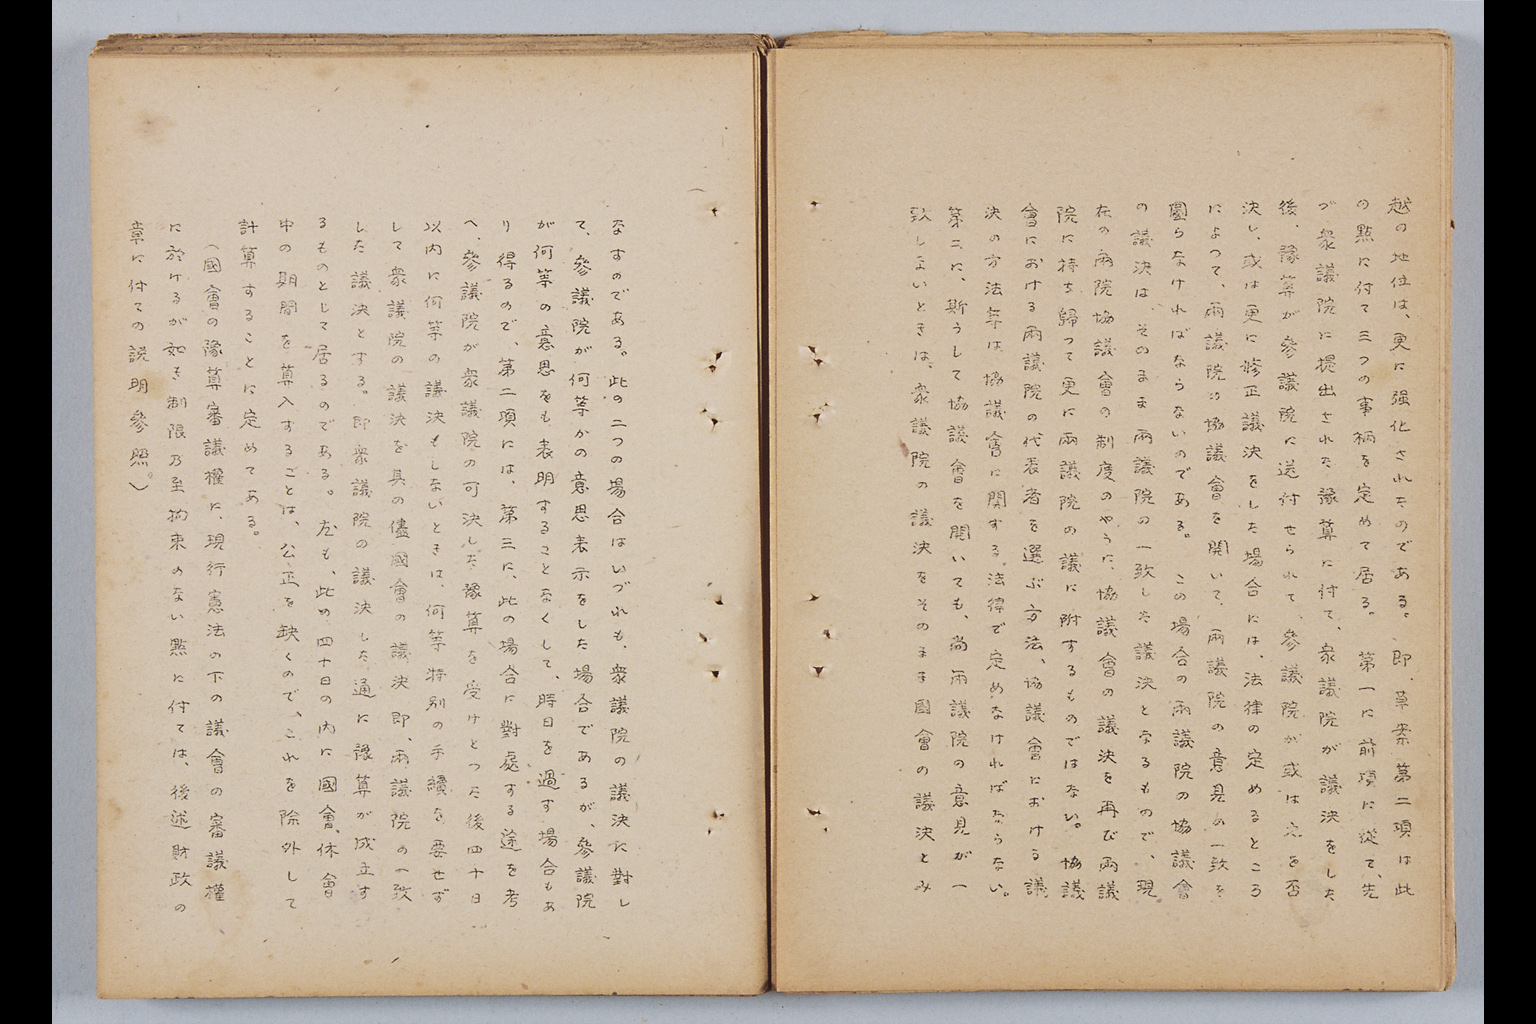 越の地位は、更に强化されたのである。卽、草案第二項は此
の點に付て三つの事柄を定めて居る。第一に前項に從て、先
づ衆議院に提出された豫算に付て、衆議院が議決をした
後、豫算が參議院に送付せられて、參議院が或は之を否
決し、或は更に修正議決をした場合には、法律の定めるところ
によつて、兩議院の協議會を開いて、兩議院の意見の一致を
圖らなければならないのである。この場合の兩議院の協議會
の議決は、そのまま兩議院の一致した議決となるもので、現
在の兩院協議會の制度のやうに、協議會の議決を再び兩議
院に持ち歸つて更に兩議院の議に附するものではない。協議
會における兩議院の代表者を選ぶ方法、協議會における議
決の方法等は協議會に関する法律で定めなければならない。
第二に、斯うして協議會を開いても、尚兩議院の意見が一
致しないときは、衆議院の議決をそのまま國會の議決とみ
なすのである。此の二つの場合はいづれも、衆議院の議決に對し
て、參議院が何等かの意思表示をした場合であるが、參議院
が何等の意思をも表明することなくして、時日を過す場合もあ
り得るので、第二項には、第三に、此の場合に對處する途を考
へ、參議院が衆議院の可決した豫算を受けとつた後四十日
以内に何等の議決もしないときは、何等特別の手續を要せず
して衆議院の議決を其の儘國會の議決卽、兩議院の一致
した議決とする。卽衆議院の議決した通に豫算が成立す
るものとして居るのである。尤も、此の四十日の内に國會、休會
中の期間を算入することは、公正を缺くので、これを除外して
計算することに定めてある。
（國會の豫算審議權に、現行憲法の下の議會の審議權
に於けるが如き制限乃至拘束のない點に付ては、後述財政の
章に付ての説明參照。）